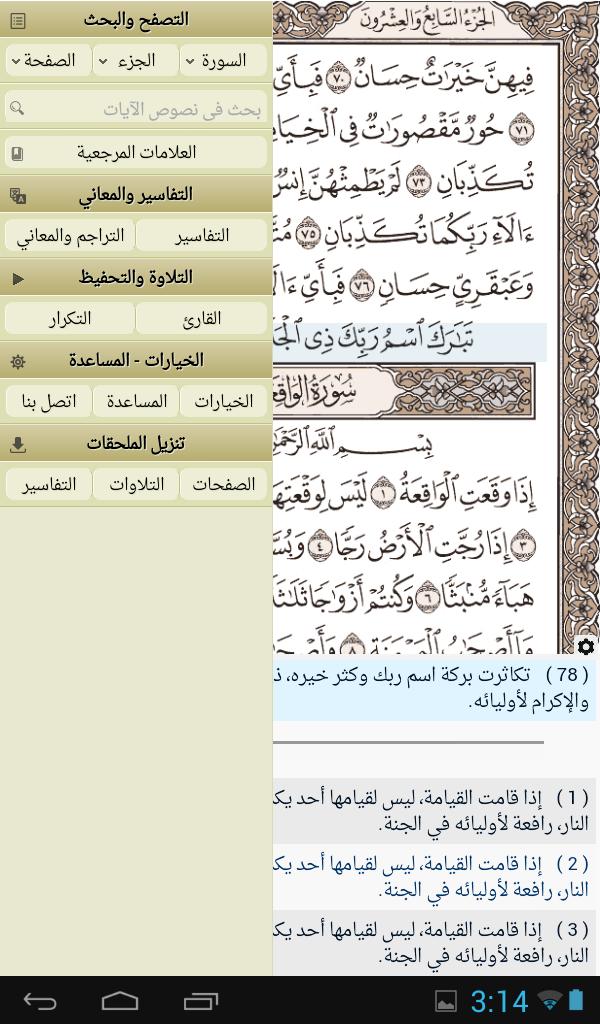 التصفح والبحث
السورة الجزء الصفحة
بحث فى نصوص الآيات
العلامات المرجعية
التفاسير والمعاني
التفاسير التراجم والمعاني
التلاوة والتحفيظ
القارئ التكرار
الخيارات - المساعدة
الخيارات المساعدة اتصل بنا
تنزيل الملحقات
الصفحات التلاوات التفاسير
الجزء السابع والعشرون
فِيهِنَّ خَيْرَٰتٌ حِسَانٌ ٧٠ فَبِأَيِّ
٧١ حُورٌ مَّقْصُورَٰتٌ فِي
تُكَذِّبَانِ ٧٣ لَمْ يَطْمِثْهُنَّ إِنسٌ
ءَالَآءِ رَبِّكُمَا تُكَذِّبَانِ ٧٥
وَعَبْقَرِيٍّ حِسَانٍ ٧٦ فَبِأَيِّ
تَبَٰرَكَ ٱسْمُ رَبِّكَ ذِي
سُورَةُ
بِسْمِ ٱللَّهِ
إِذَا وَقَعَتِ ٱلْوَاقِعَةُ ١ لَيْسَ لِوَقْعَتِهَا
٣ إِذَا رُجَّتِ ٱلْأَرْضُ رَجًّا ٤
هَبَآءً مُّنۢبَثًّا ٦ وَكُنتُمْ أَزْوَٰجًا
( 78 ) تكاثرت بركة اسم ربك وكثر خيره، ذ
والإكرام لأوليائه.
( 1 ) إذا قامت القيامة، ليس لقيامها أحد يك
النار، رافعة لأوليائه في الجنة.
( 2 ) إذا قامت القيامة، ليس لقيامها أحد يك
النار، رافعة لأوليائه في الجنة.
( 3 ) إذا قامت القيامة، ليس لقيامها أحد يك
النار، رافعة لأوليائه في الجنة.
3:14